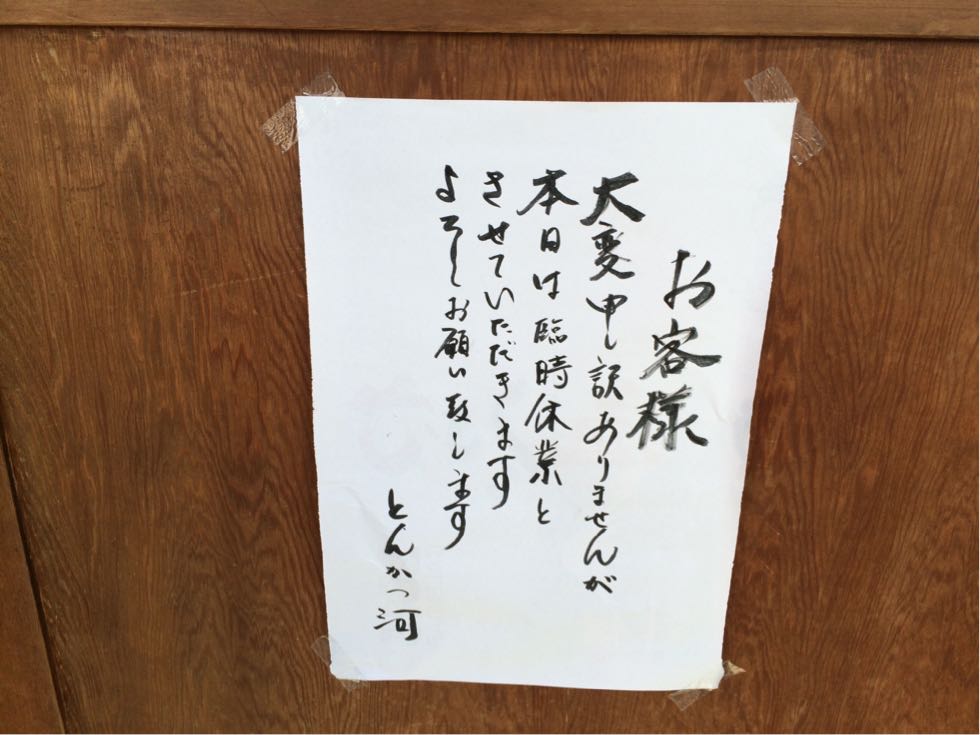 お客様
大変申し訳ありませんが
本日は臨時休業と
させていただきます
よろしくお願い致します
とんかつ河